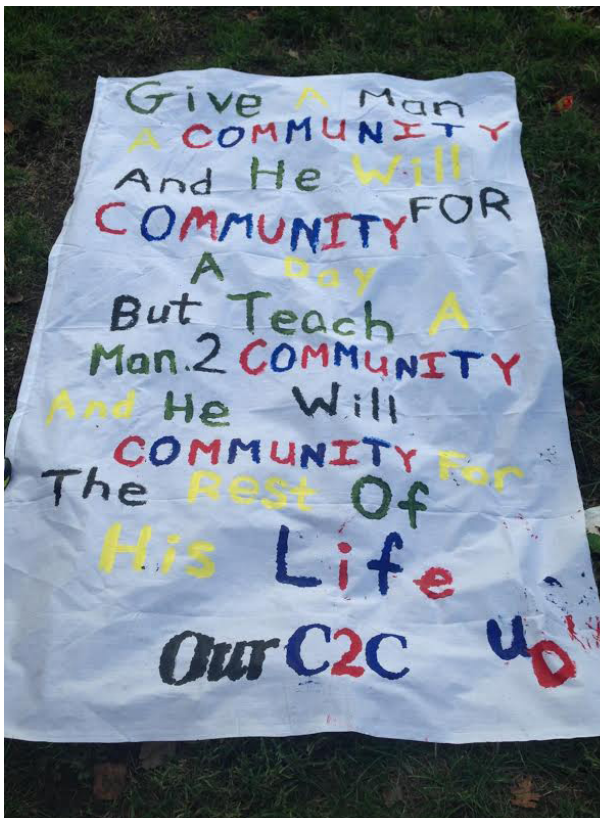 Give A Man
A COMMUNITY
And He Will
COMMUNITY FOR
A Day
But Teach A
Man.2 COMMUNITY
And He Will
COMMUNITY For
The Rest Of
His Life
Our C2C